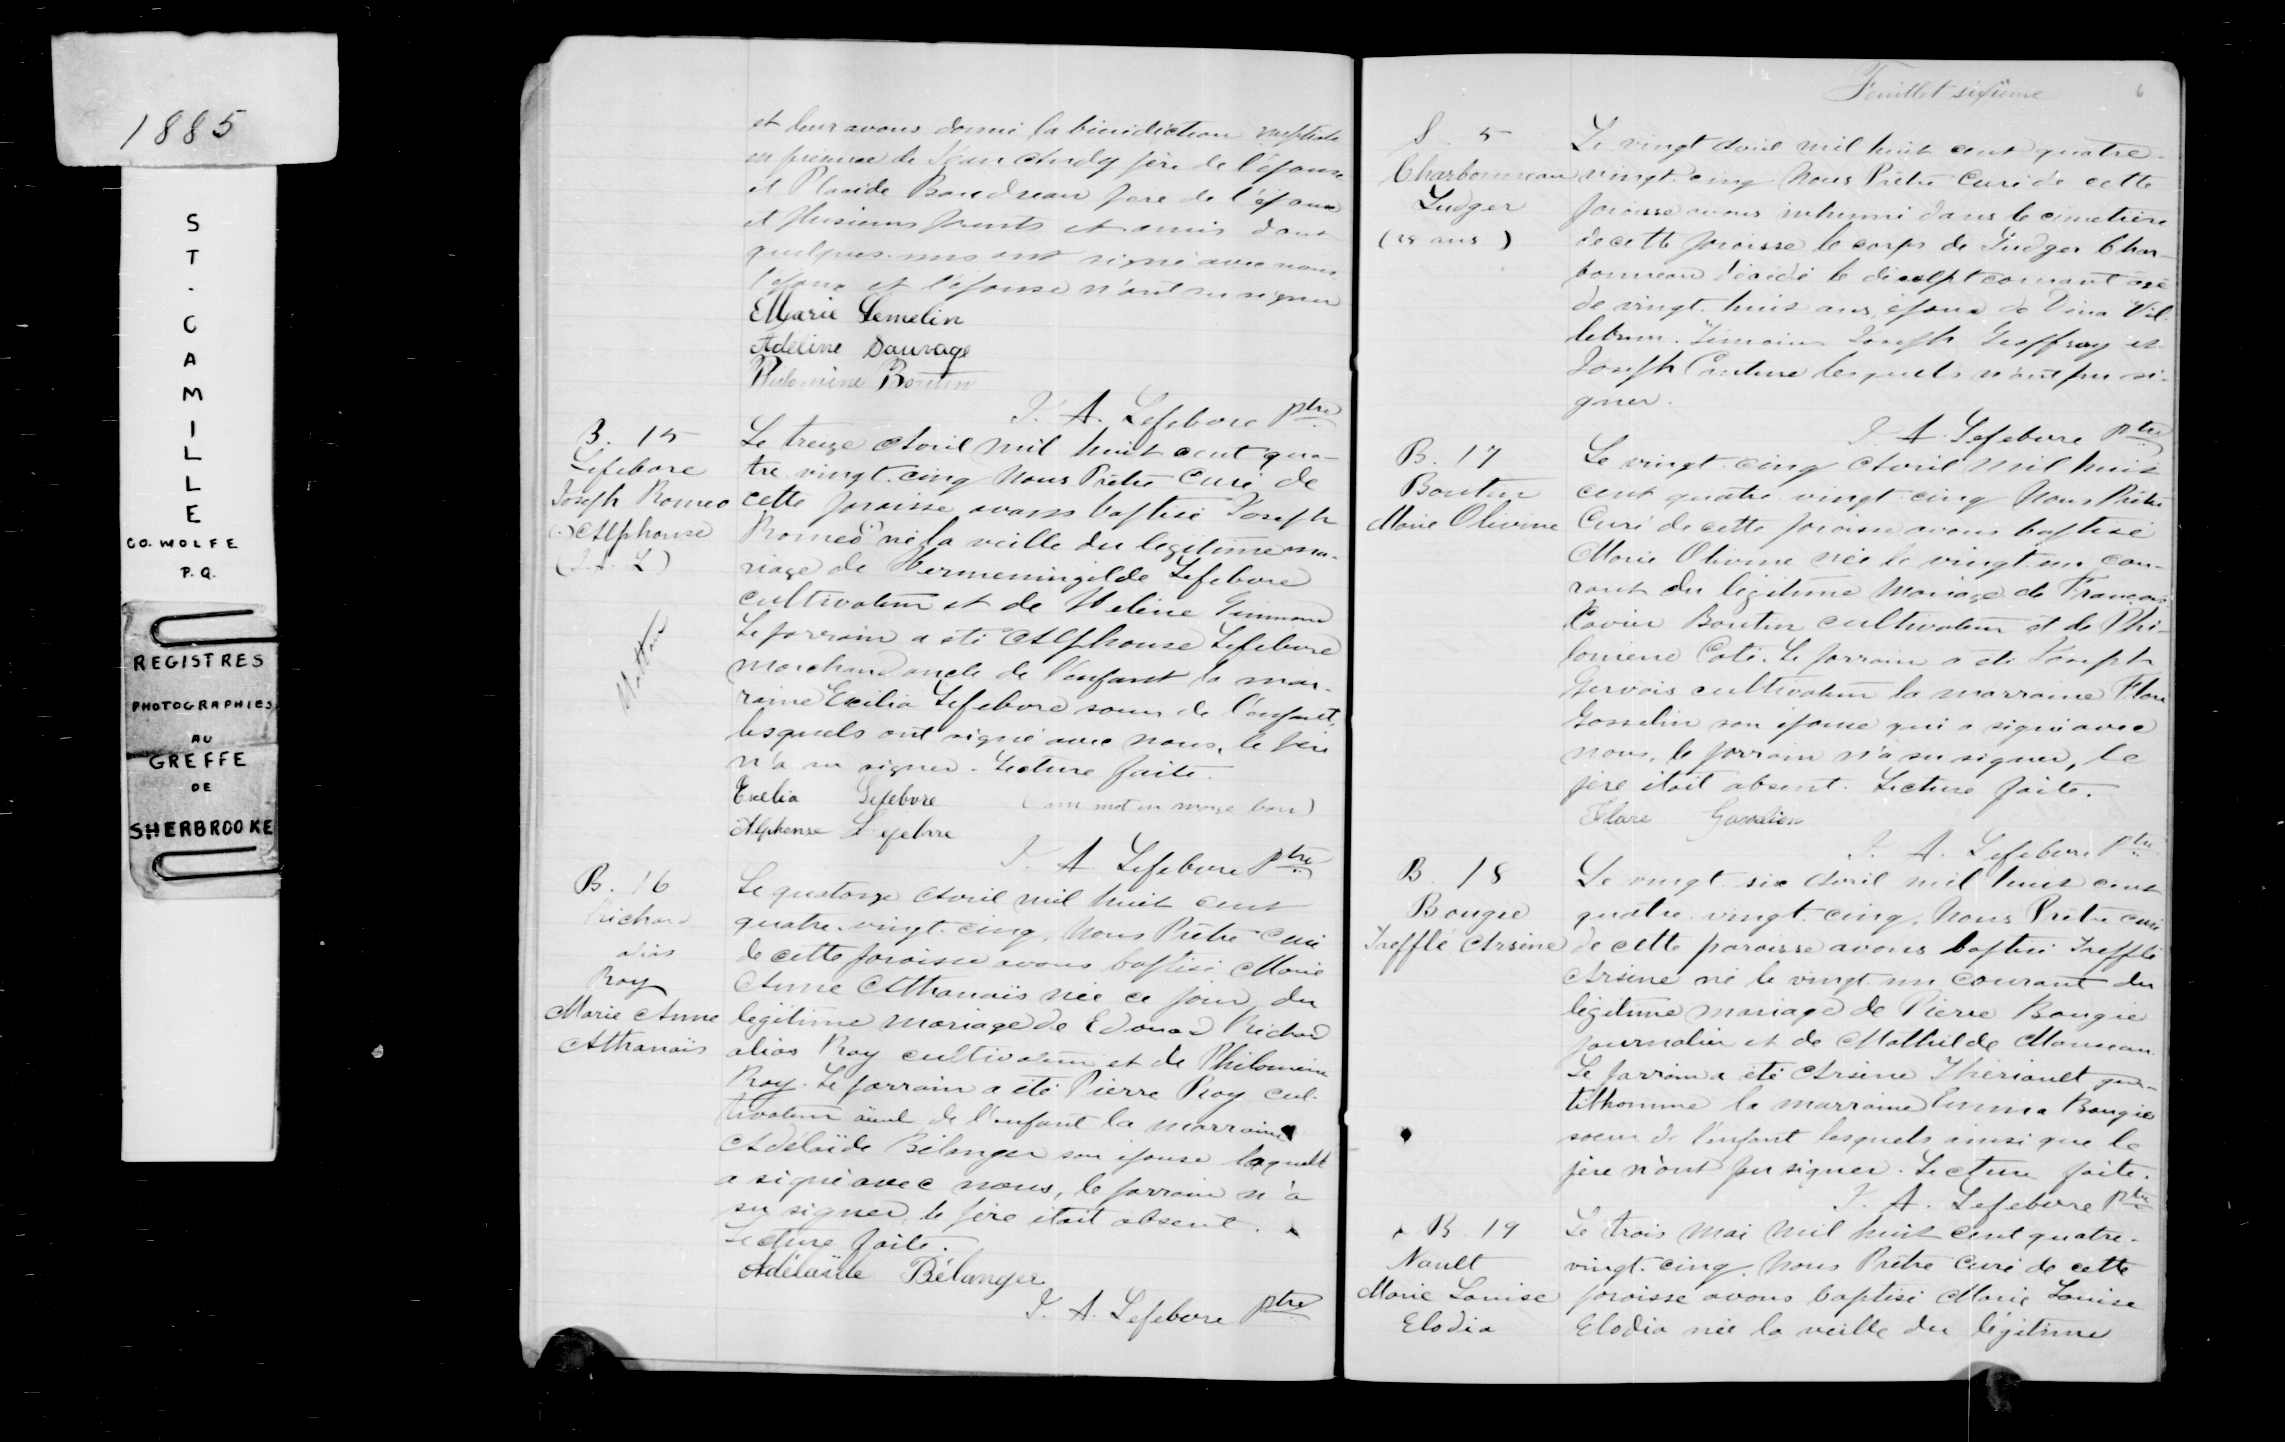 1885
ST. CAMILLE
CO. WOLFE
P.Q.
REGISTRES
PHOTOGRAPHIES
AU
GREFFE
DE
SHERBROOKE
et leur avons donné la bénédiction nuptiale
en présence de Jean père de l'épouse
et Placide Baudreau père de l'époux
et plusieurs parents et amis dont
quelques-uns ont signé avec nous
l'époux et l'épouse n'ont su signer
Marie Lemelin
Adeline Sauvage
Philomène Boutin
J. A. Lefebvre ptre
B. 15
Lefebvre
Joseph Romeo
(.) Alphonse
(J.A.L)
Le treize Avril mil huit cent qua-
tre vingt-cinq Nous Prêtre Curé de
cette paroisse avons baptisé Joseph
Romeo né la veille du légitime ma-
riage de Hermeningilde Lefebvre
cultivateur et de Helène Guimond
Le parrain a été Alphonse Lefebvre
marchand oncle de l'enfant la mar-
raine Exilia Lefebvre soeur de l'enfant,
lesquels ont signé avec nous, le père
n'a su signer. Lecture faite.
Exelia Lefebvre (un mot en marge bon)
Alphonse Lefebvre
J. A. Lefebvre Ptre
B. 16
Richard
alias
Roy
Marie Anne
Athanaïs
Le quatorze Avril mil huit cent
quatre-vingt-cinq, Nous Prêtre Curé
de cette paroisse avons baptisé Marie
Anne Athanaïs née ce jour du
légitime mariage de Edouard Richard
alias Roy cultivateur et de Philomène
Roy. Le parrain a été Pierre Roy cul-
tivateur aïeul de l'enfant la marraine
Adélaïde Bélanger son épouse laquelle
a signé avec nous, le parrain n'a
su signer, le père était absent.
Lecture faite.
Adélaïde Bélanger
J. A. Lefebvre ptre
Feuillet sixième 6
S. 5
Charbonneau
Ludger
(28 ans)
Le vingt Avril mil huit cent quatre-
vingt-cinq Nous Prêtre Curé de cette
paroisse avons inhumé dans le cimetière
de cette paroisse le corps de Ludger Char-
bonneau décédé le dix-sept courant agé
de vingt-huit ans, époux de Vina Vil-
lebrun. Témoins Joseph Geoffroy et
Joseph Couture lesquels n'ont pu si-
gner.
J. A. Lefebvre Ptre
B. 17
Boutin
Marie Olivine
Le vingt-cinq Avril mil huit
cent quatre-vingt-cinq Nous Prêtre
Curé de cette paroisse avons baptisé
Marie Olivine née le vingt un cou-
rant du légitime mariage de François
Xavier Boutin cultivateur et de Phi-
lomène Coté. Le parrain a été Joseph
Gervais cultivateur la marraine Flore
Gosselin son épouse qui a signé avec
nous, le parrain n'a su signer, le
père était absent. Lecture faite.
Flore Gosselin
J. A. Lefebvre Ptre
B. 18
Bougie
Trefflé Arsène
Le vingt-six Avril mil huit cent
quatre-vingt-cinq, Nous Prêtre curé
de cette paroisse avons baptisé Trefflé
Arsène né le vingt un courant du
légitime mariage de Pierre Bougie
journalier et de Mathilde Mousseau
Le parrain a été Arsène Thériault gen-
tilhomme la marraine Emma Bougie
soeur de l'enfant lesquels ainsi que le
père n'ont pu signer. Lecture faite.
J. A. Lefebvre Ptre
B. 19
Nault
Marie Louise
Elodia
Le trois Mai mil huit cent quatre-
vingt-cinq, Nous Prêtre Curé de cette
paroisse avons baptisé Marie Louise
Elodia née la veille du légitime